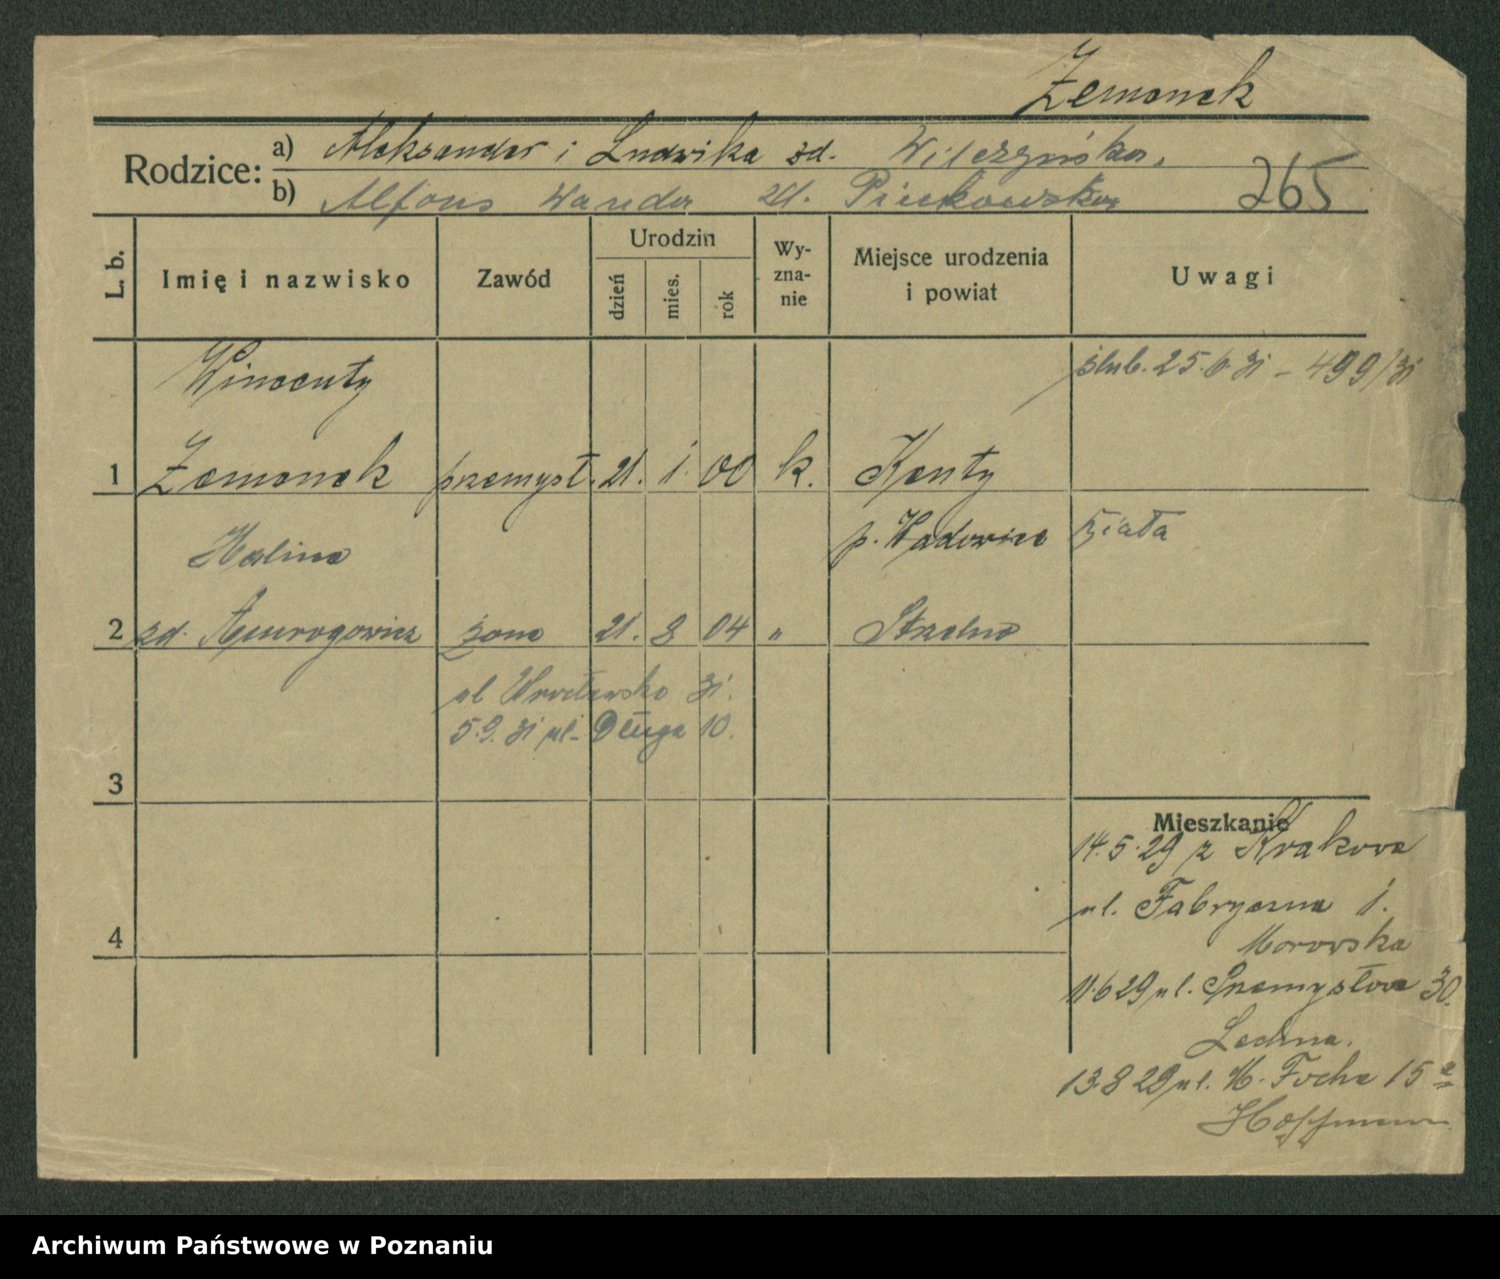 Zemanek
Rodzice:
a) Aleksander i Ludwika zd. Wilczyńska.
b) Alfons Wanda zd. Pieńkowska
265
L. b.
Imię i nazwisko
Zawód
Urodzin
dzień
mies.
rok
Wy-
zna-
nie
Miejsce urodzenia
i powiat
Uwagi
Wincenty
ślub. 25.6.31 – 499/31
1 Zemanek przemysł. 21. 1. 00 k. Kenty
p. Wadowice Biała
Halina
2 zd. żona 21. 8 04 " Strzelno
ul Wrocławska 31.
5.9.31 ul. Długa 10.
3
Mieszkanie
14.5.29 z Krakowa
ul. Fabryczna 1.
Morowska
4
11.6 29 ul. Przemysłowa 30.
13.8 29 ul. M. Focha 15 a
Hoffmann
Archiwum Państwowe w Poznaniu